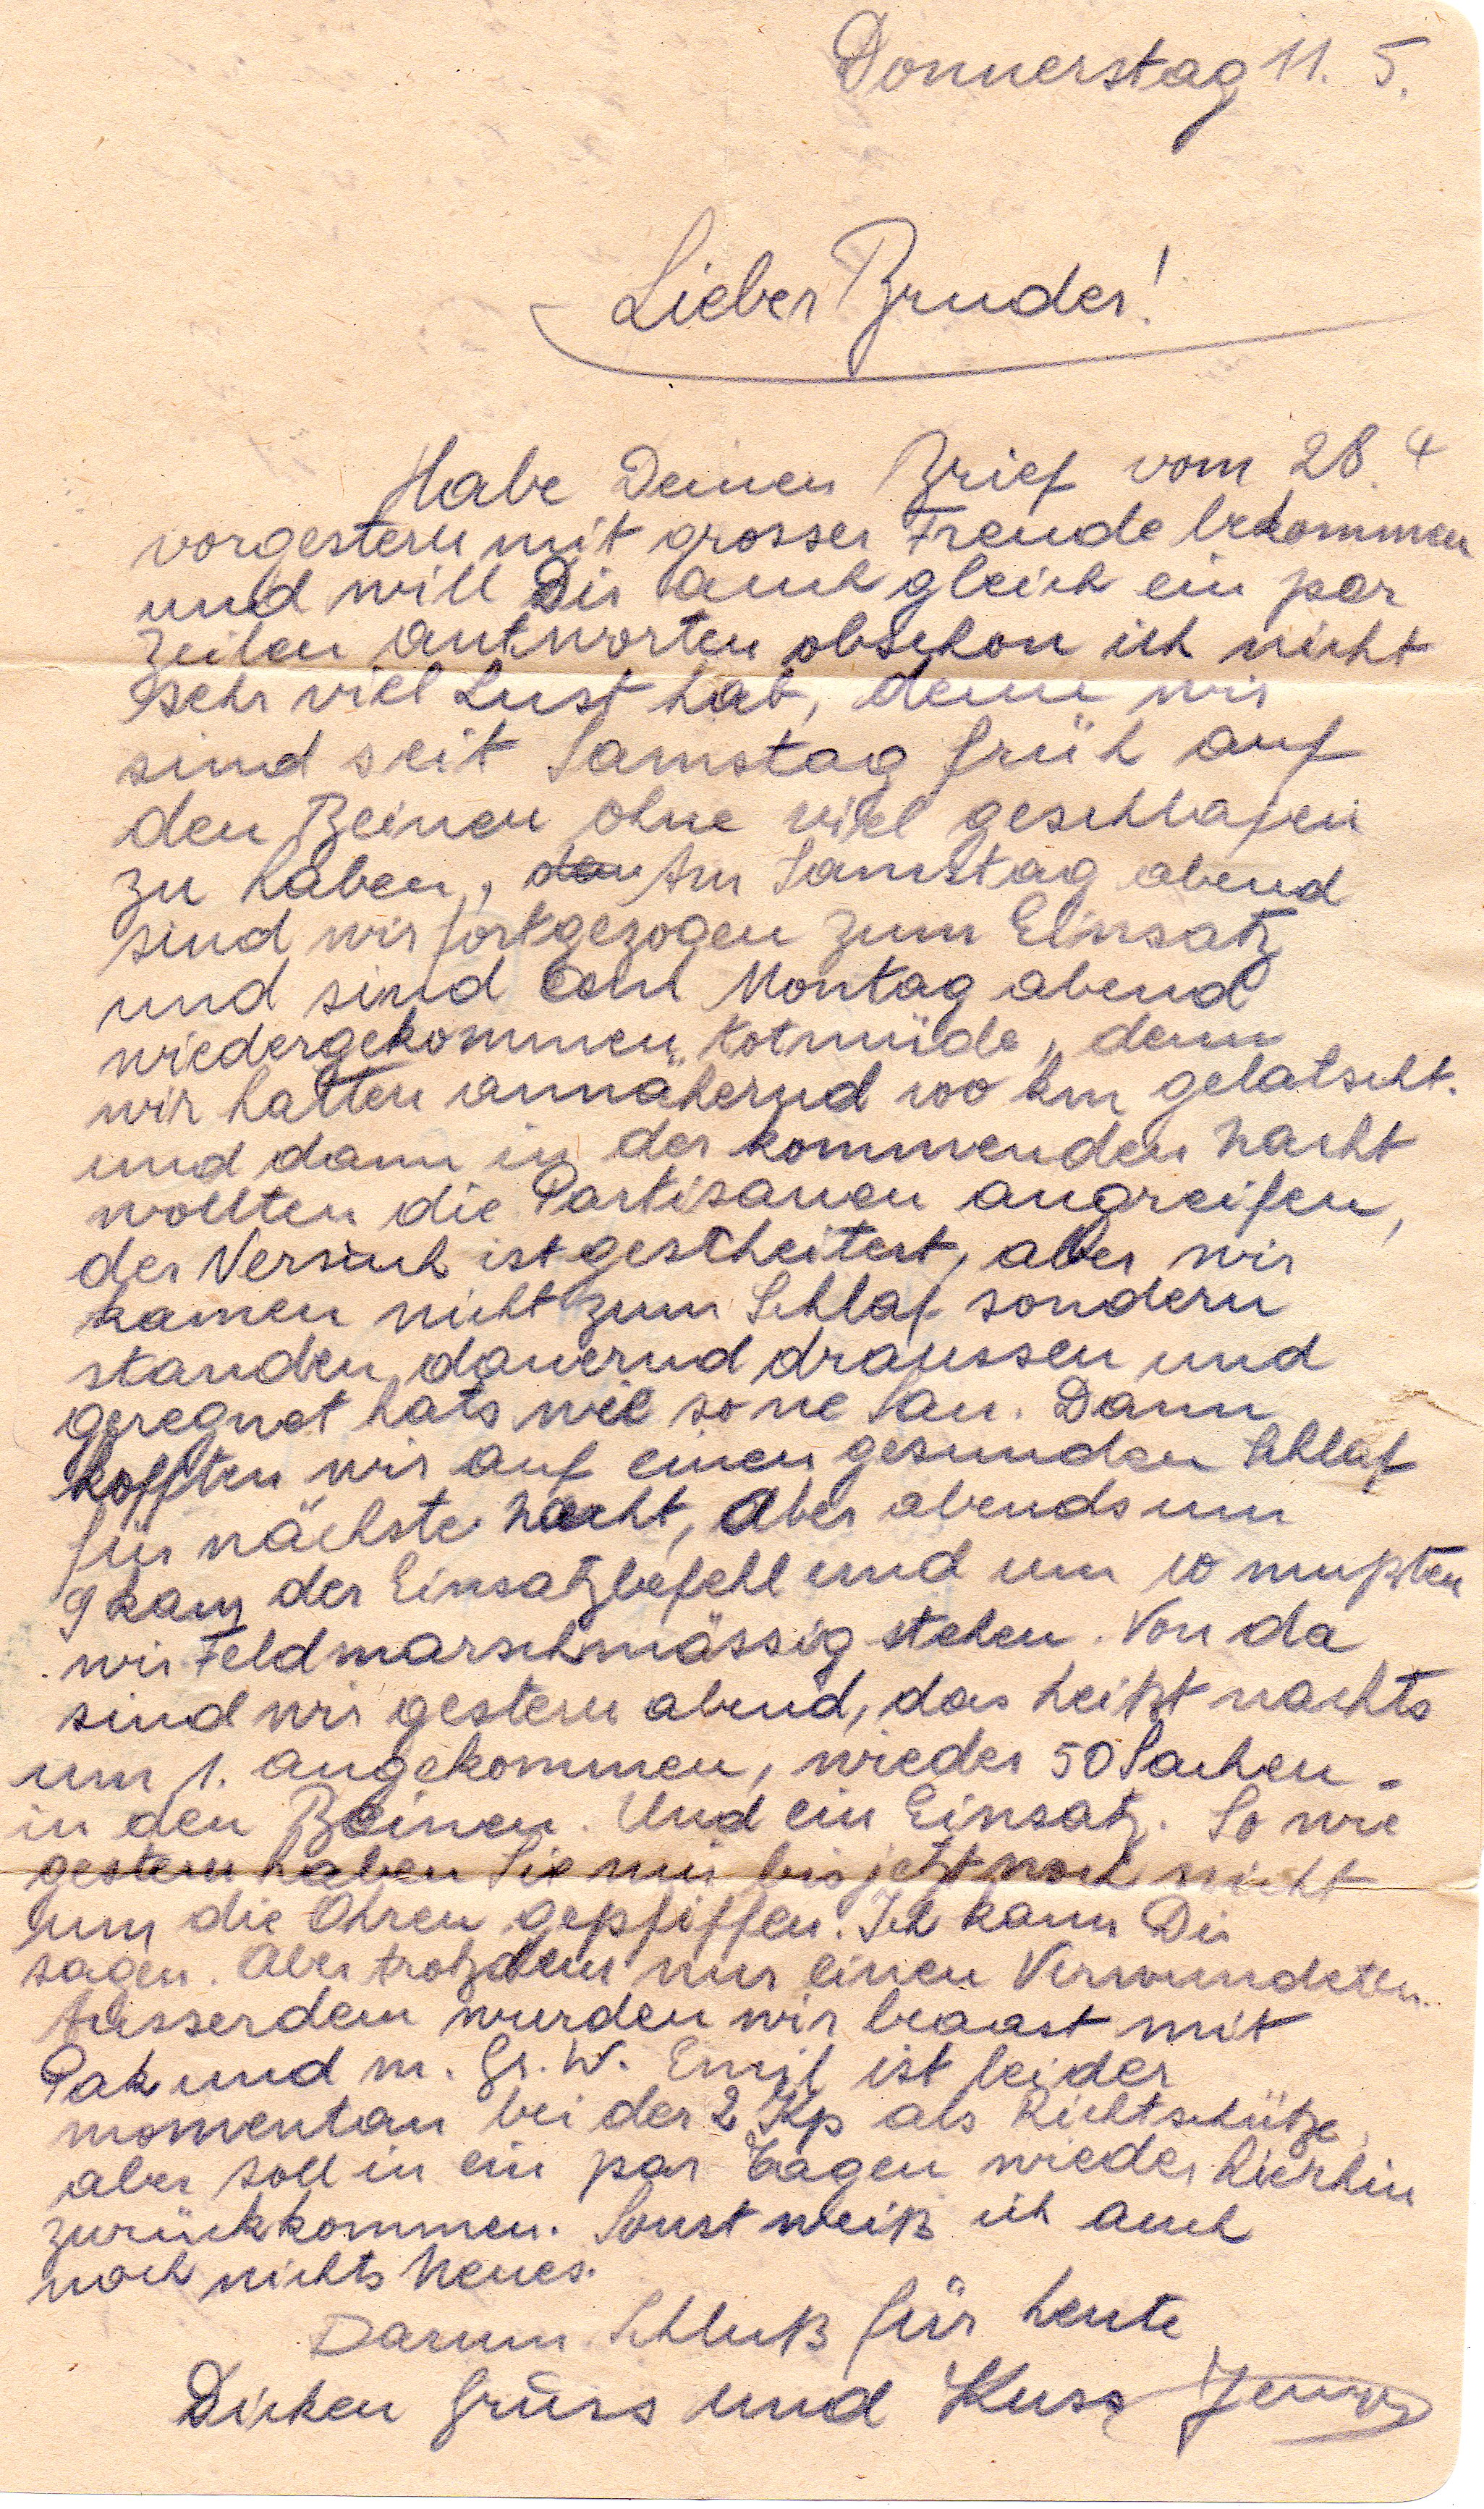 Donnerstag 11. 5.
Lieber Bruder!
Habe Deinen Brief vom 28. 4
vorgestern mit grosser Freude bekommen
und will Dir auch gleich ein par
Zeilen antworten obschon ich nicht
sehr viel Lust hab, denn wir
sind seit Samstag früh auf
den Beinen ohne viel geschlafen
zu haben, Am Samstag abend
sind wir fortgezogen zum Einsatz
und sind Montag abend
wiedergekommen „totmüde„ denn
wir hatten annähernd 100 km gelatscht.
und dann in der kommenden Nacht
wollten die Partisanen angreifen,
der Versuch ist gescheitert, aber wir
kamen nicht zum Schlaf sondern
standen dauernd draussen und
geregnet hats wie so ne Sau. Dann
hofften wir auf einen gesunden Schlaf
für nächste Nacht, Aber abends um
9 kam der Einsatzbefehl und um 10 mußten
wir Feldmarschmässig stehen. Von da
sind wir gestern abend, das heißt nachts
um 1. angekommen, wieder 50 Sachen
in den Beinen. Und ein Einsatz. So wie
gestern haben Sie mir bis jetzt noch nicht
um die Ohren gepfiffen. Ich kann Dir
sagen. Aber trotzdem nur einen Verwundeten.
Ausserdem wurden wir beaast mit
Pak und m. Gr. W. Emil ist leider
momentan bei der 2 Kp als Richtschütze,
aber soll in ein par Tagen wieder hierhin
zurückkommen. Sonst weiß ich auch
noch nichts Neues.
Darum Schluß für heute
Dicken Grüss und Kuss